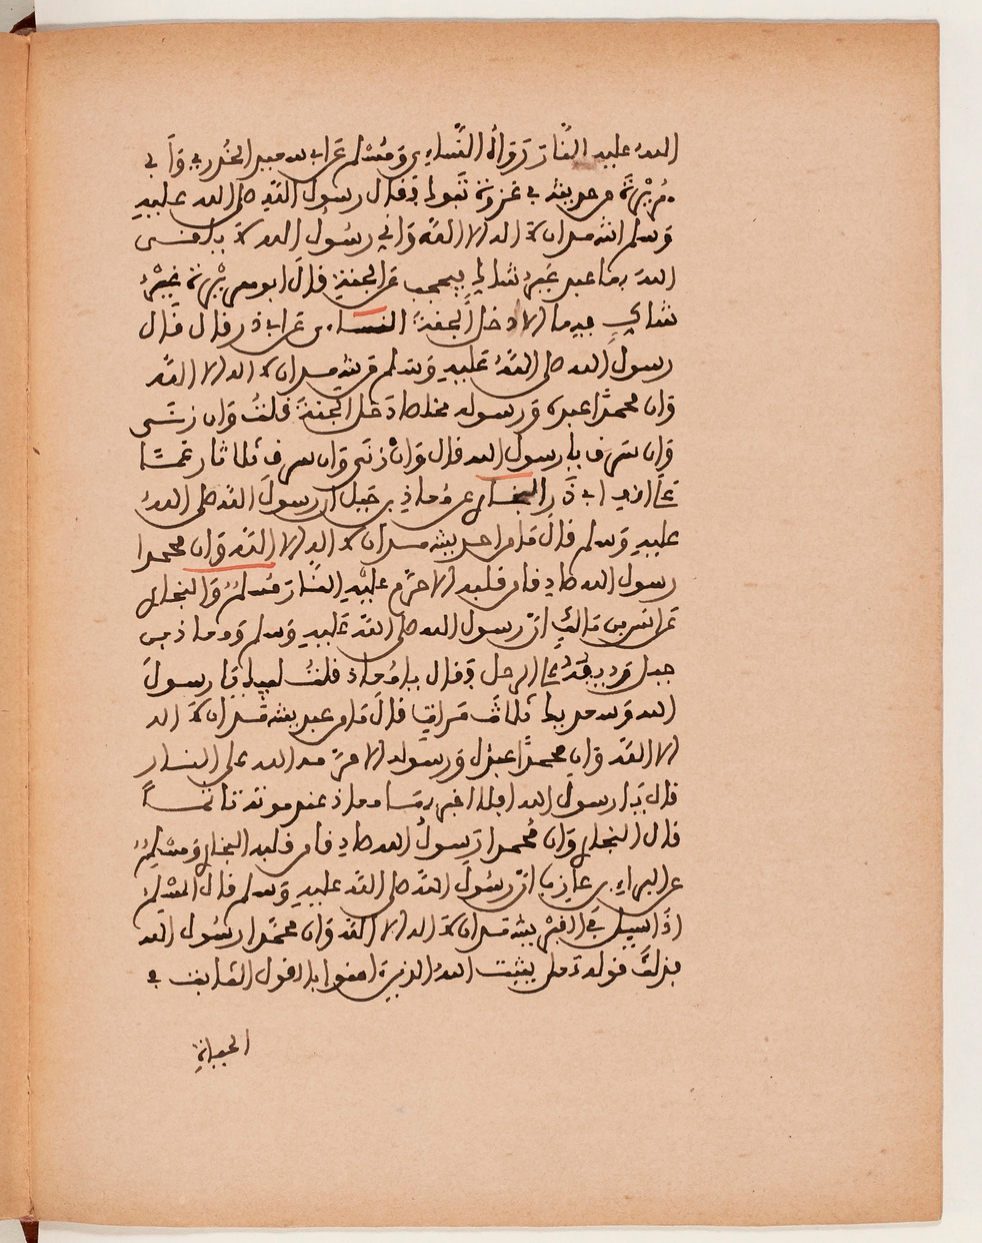 الله عليه النار رواه النساءي ومسلم عن ابي سعيد الخدري وابي
هريرة من حديثه في غزوة تبوك فقال رسول الله صلى الله عليه
وسلم اشهد ان لا اله الا الله واني رسول الله لا يلقى
الله بهما عبد غير شاك فيحجب عن الجنة قال ابو هريرة غير
شاك فيهما الا دخل الجنة النساءي عن ابي ذر قال قال
رسول الله صلى الله عليه وسلم من شهد ان لا اله الا الله
وان محمدا عبده ورسوله مخلصا دخل الجنة قلت وان زنى
وان سرق يا رسول الله قال وان زنى وان سرق ثلاثا رغما
على انف ابي ذر البخاري عن معاذ بن جبل ان رسول الله صلى الله
عليه وسلم قال ما من احد يشهد ان لا اله الا الله وان محمدا
رسول الله صادفا من قلبه الا حرم عليه النار مسلم والبخاري
عن انس بن مالك ان رسول الله صلى الله عليه وسلم ومعاذ بن
جبل رديفه على الرحل فقال يا معاذ قلت لبيك يا رسول
الله وسعديك ثلاث مرات قال ما من عبد يشهد ان لا اله
الا الله وان محمدا عبده ورسوله الا حرمه الله على النار
قال يا رسول الله افلا اخبر بها معاذ عند موته تاثما
قال البخاري وان محمدا رسول الله صادفا من قلبه البخاري ومسلم
عن البراء بن عازب ان رسول الله صلى الله عليه وسلم قال المسلم
اذا سيل في القبر يشهد ان لا اله الا الله وان محمدا رسول الله
فذلك قوله تعلى يثبت الله الذين امنوا بالقول الثابت في
الحياة